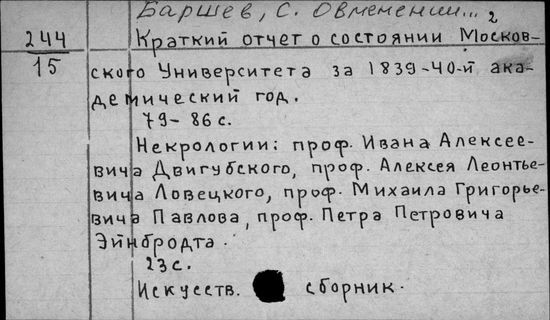 Баршев, С. О вменении... 2
244 Краткий отчет о состоянии Москов-
15 ского Университета за 1839-40-й ака-
демический год.
79-86 с.
Некрологии: проф. Ивана Алексее-
вича Двигубского, проф. Алексея Леонтье-
вича Ловецкого, проф. Михаила Григорье-
вича Павлова, проф. Петра Петровича
Эйнбродта.
23 с.
Искусств. сборник.